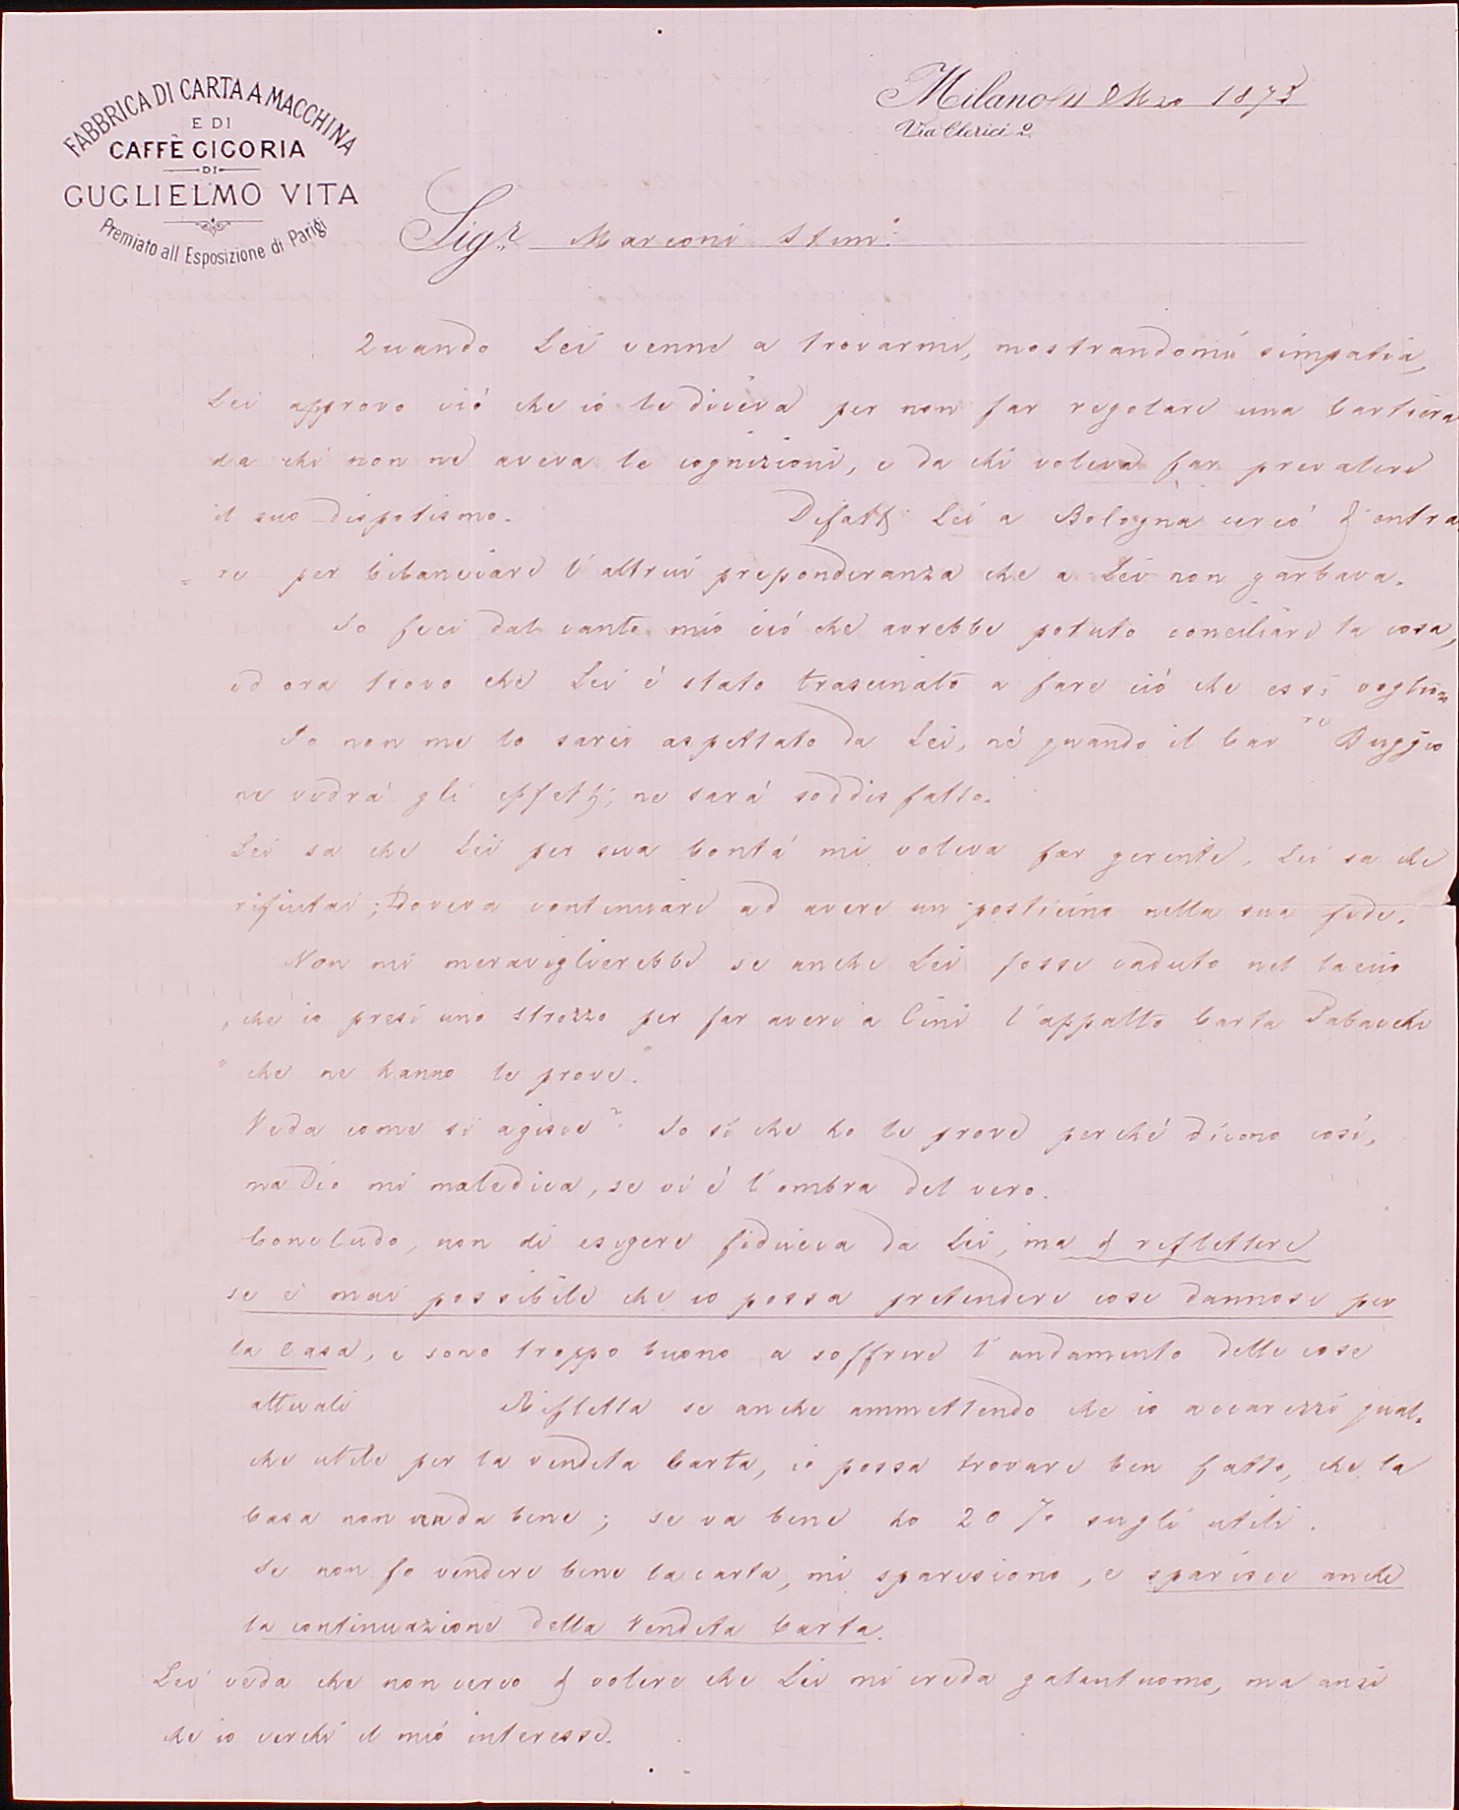 FABBRICA DI CARTA A MACCHINA
E DI
CAFFÈ CICORIA
DI
GUGLIELMO VITA
Premiato all Esposizione di Parigi
Milano 1873
Via Clerici 2.
Sig.r Marconi Stim:
Quando Lei venne a trovarmi, mostrandomi simpatia,
Lei approvo ció che io le diceva per non far regolare una Cartiera
da chi non ne aveva le cognizioni, e da chi voleva far prevalere
il suo dispotismo. Difatti Lei a Bologna cercó d'entra
= re per bilanciare l'altrui preponderanza che a Lei non garbava.
Io feci dal canto mio ció che avrebbe potuto conciliare la cosa,
ed ora trovo che Lei é stato trascinato a fare ció che essi voglion
Io non me lo sarei aspettato da Lei, né quando il Cav re Buggio
ne vedrá gli effetti, ne sará soddisfatto.
Lei sa che Lei per sua bontá mi voleva far gerente, Lei sa che
rifiutai; Doveva continuare ad avere un posticino nella sua fede.
Non mi meraviglierebbe se anche Lei fosse caduto nel laccio
„ che io presi uno strozzo per far avere a Cini l'appalto Carta Tabacchi
" che ne hanno le prove."
Veda come si agisce? Io sí che ho le prove perché dicono cosí,
ma Dio mi maledica, se vi é l'ombra del vero.
Concludo, non di esigere fiducia da Lei, ma di riflettere
se è mai possibile che io possa pretendere cose dannose per
la Casa, e sono troppo buono a soffrire l'andamento delle cose
attuali Rifletta se anche ammettendo che io accarezzi qual=
che utile per la vendita Carta, io possa trovare ben fatto, che la
Casa non vada bene; se va bene ho 20 % sugli utili.
Se non fo vendere bene la carta, mi spariscono, e sparisce anche
la continuazione della Vendita Carta.
Lei veda che non cerco di volere che Lei mi creda galantuomo, ma anzi
che io cerchi il mió interesse.